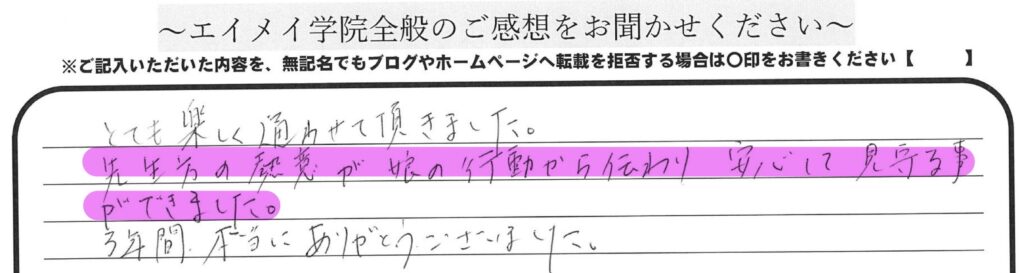 ～エイメイ学院全般のご感想をお聞かせください～
※ご記入いただいた内容を、無記名でもブログやホームページへ転載を拒否する場合は〇印をお書きください【　　　】
とても楽しく通わせて頂きました。
先生方の熱意が娘の行動から伝わり 安心して見守る事
ができました。
3年間 本当にありがとうございました。